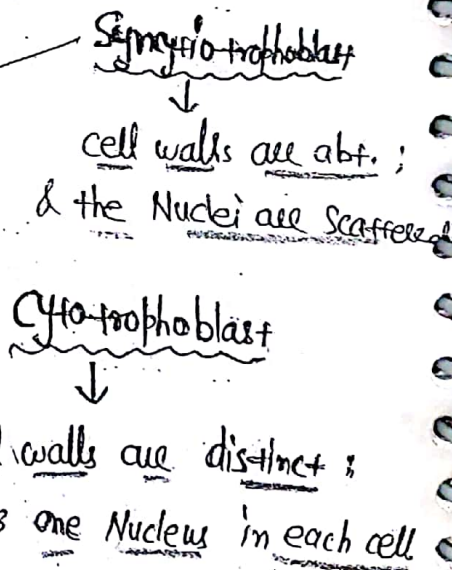 Syncytiotrophoblast
↓
cell walls are abt. ;
& the Nuclei are scattered
Cytotrophoblast
↓
walls are distinct ;
one Nucleus in each cell